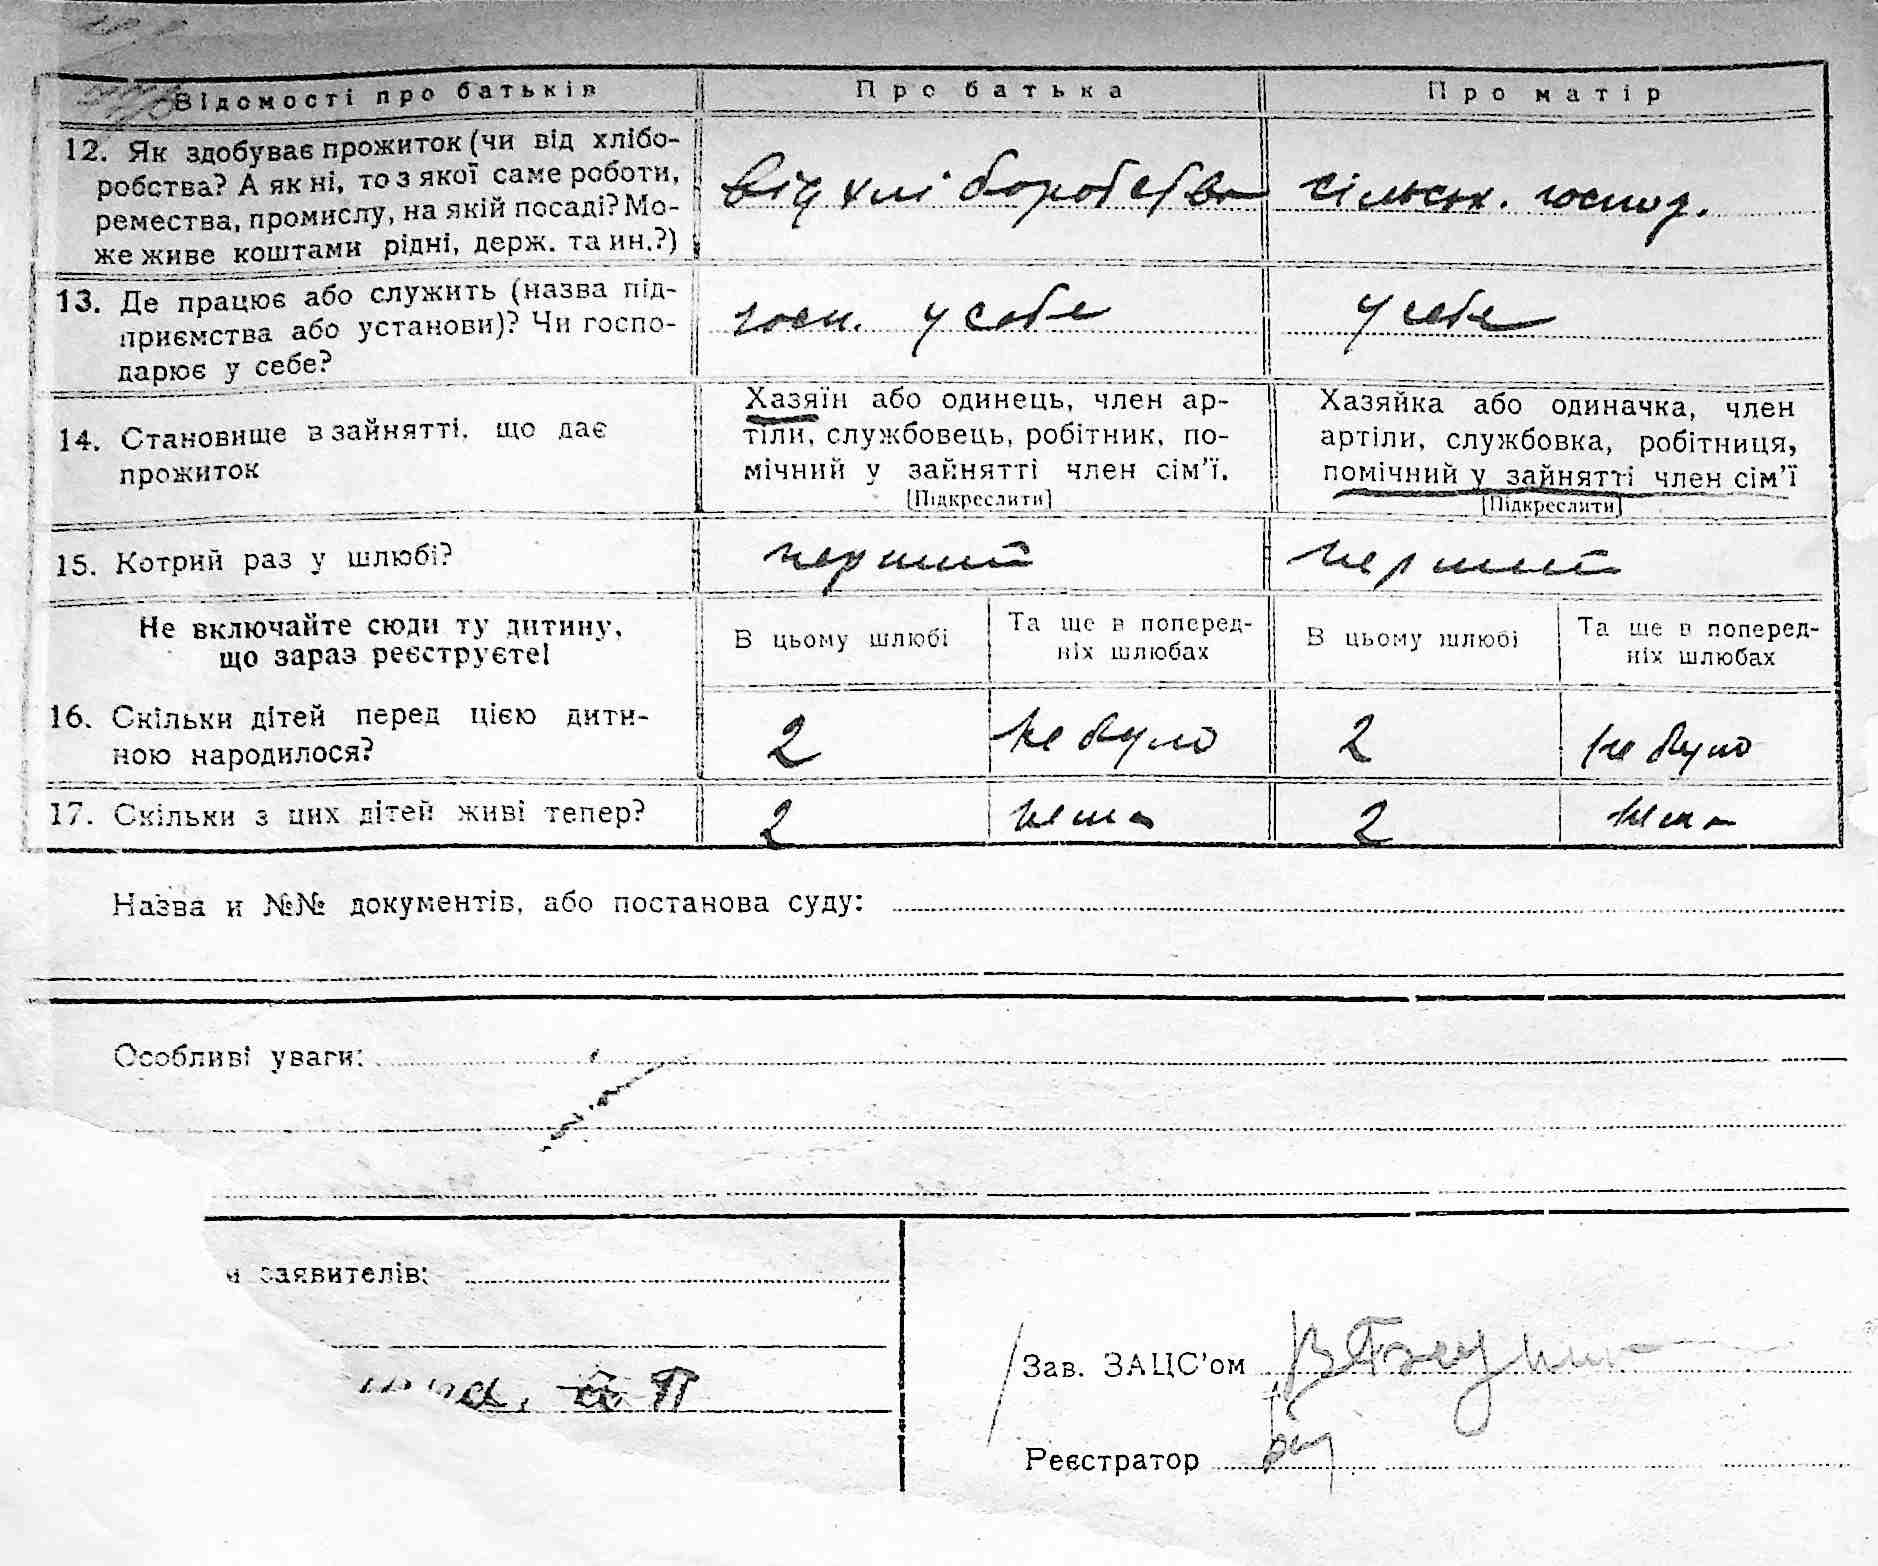 Відомості про батьків Про батька Про матір
12. Як здобуває прожиток (чи від хлібо-
робства? А як ні, то з якої саме роботи,
ремества, промислу, на якій посаді? Мо-
же живе коштами рідні, держ. та ин.?)
від хліборобства сільськ. господ.
13. Де працює або служить (назва під-
приємства або установи)? Чи госпо-
дарює у себе?
госп. у себе у себе
14. Становище в зайнятті, що дає
прожиток
Хазяїн або одинець, член ар-
тіли, службовець, робітник, по-
мічний у зайнятті член сім'ї.
[Підкреслити]
Хазяйка або одиначка, член
артіли, службовка, робітниця,
помічний у зайнятті член сім'ї
[Підкреслити]
15. Котрий раз у шлюбі? перший перший
Не включайте сюди ту дитину,
що зараз реєструєте!
В цьому шлюбі
Та ще в поперед-
ніх шлюбах
В цьому шлюбі
Та ще в поперед-
ніх шлюбах
16. Скільки дітей перед цією дити-
ною народилося?
2 не було 2 не було
17. Скільки з цих дітей живі тепер? 2 нема 2 нема
Назва и №№ документів, або постанова суду:
Особливі уваги:
заявителів:
Зав. ЗАЦС'ом
Реєстратор